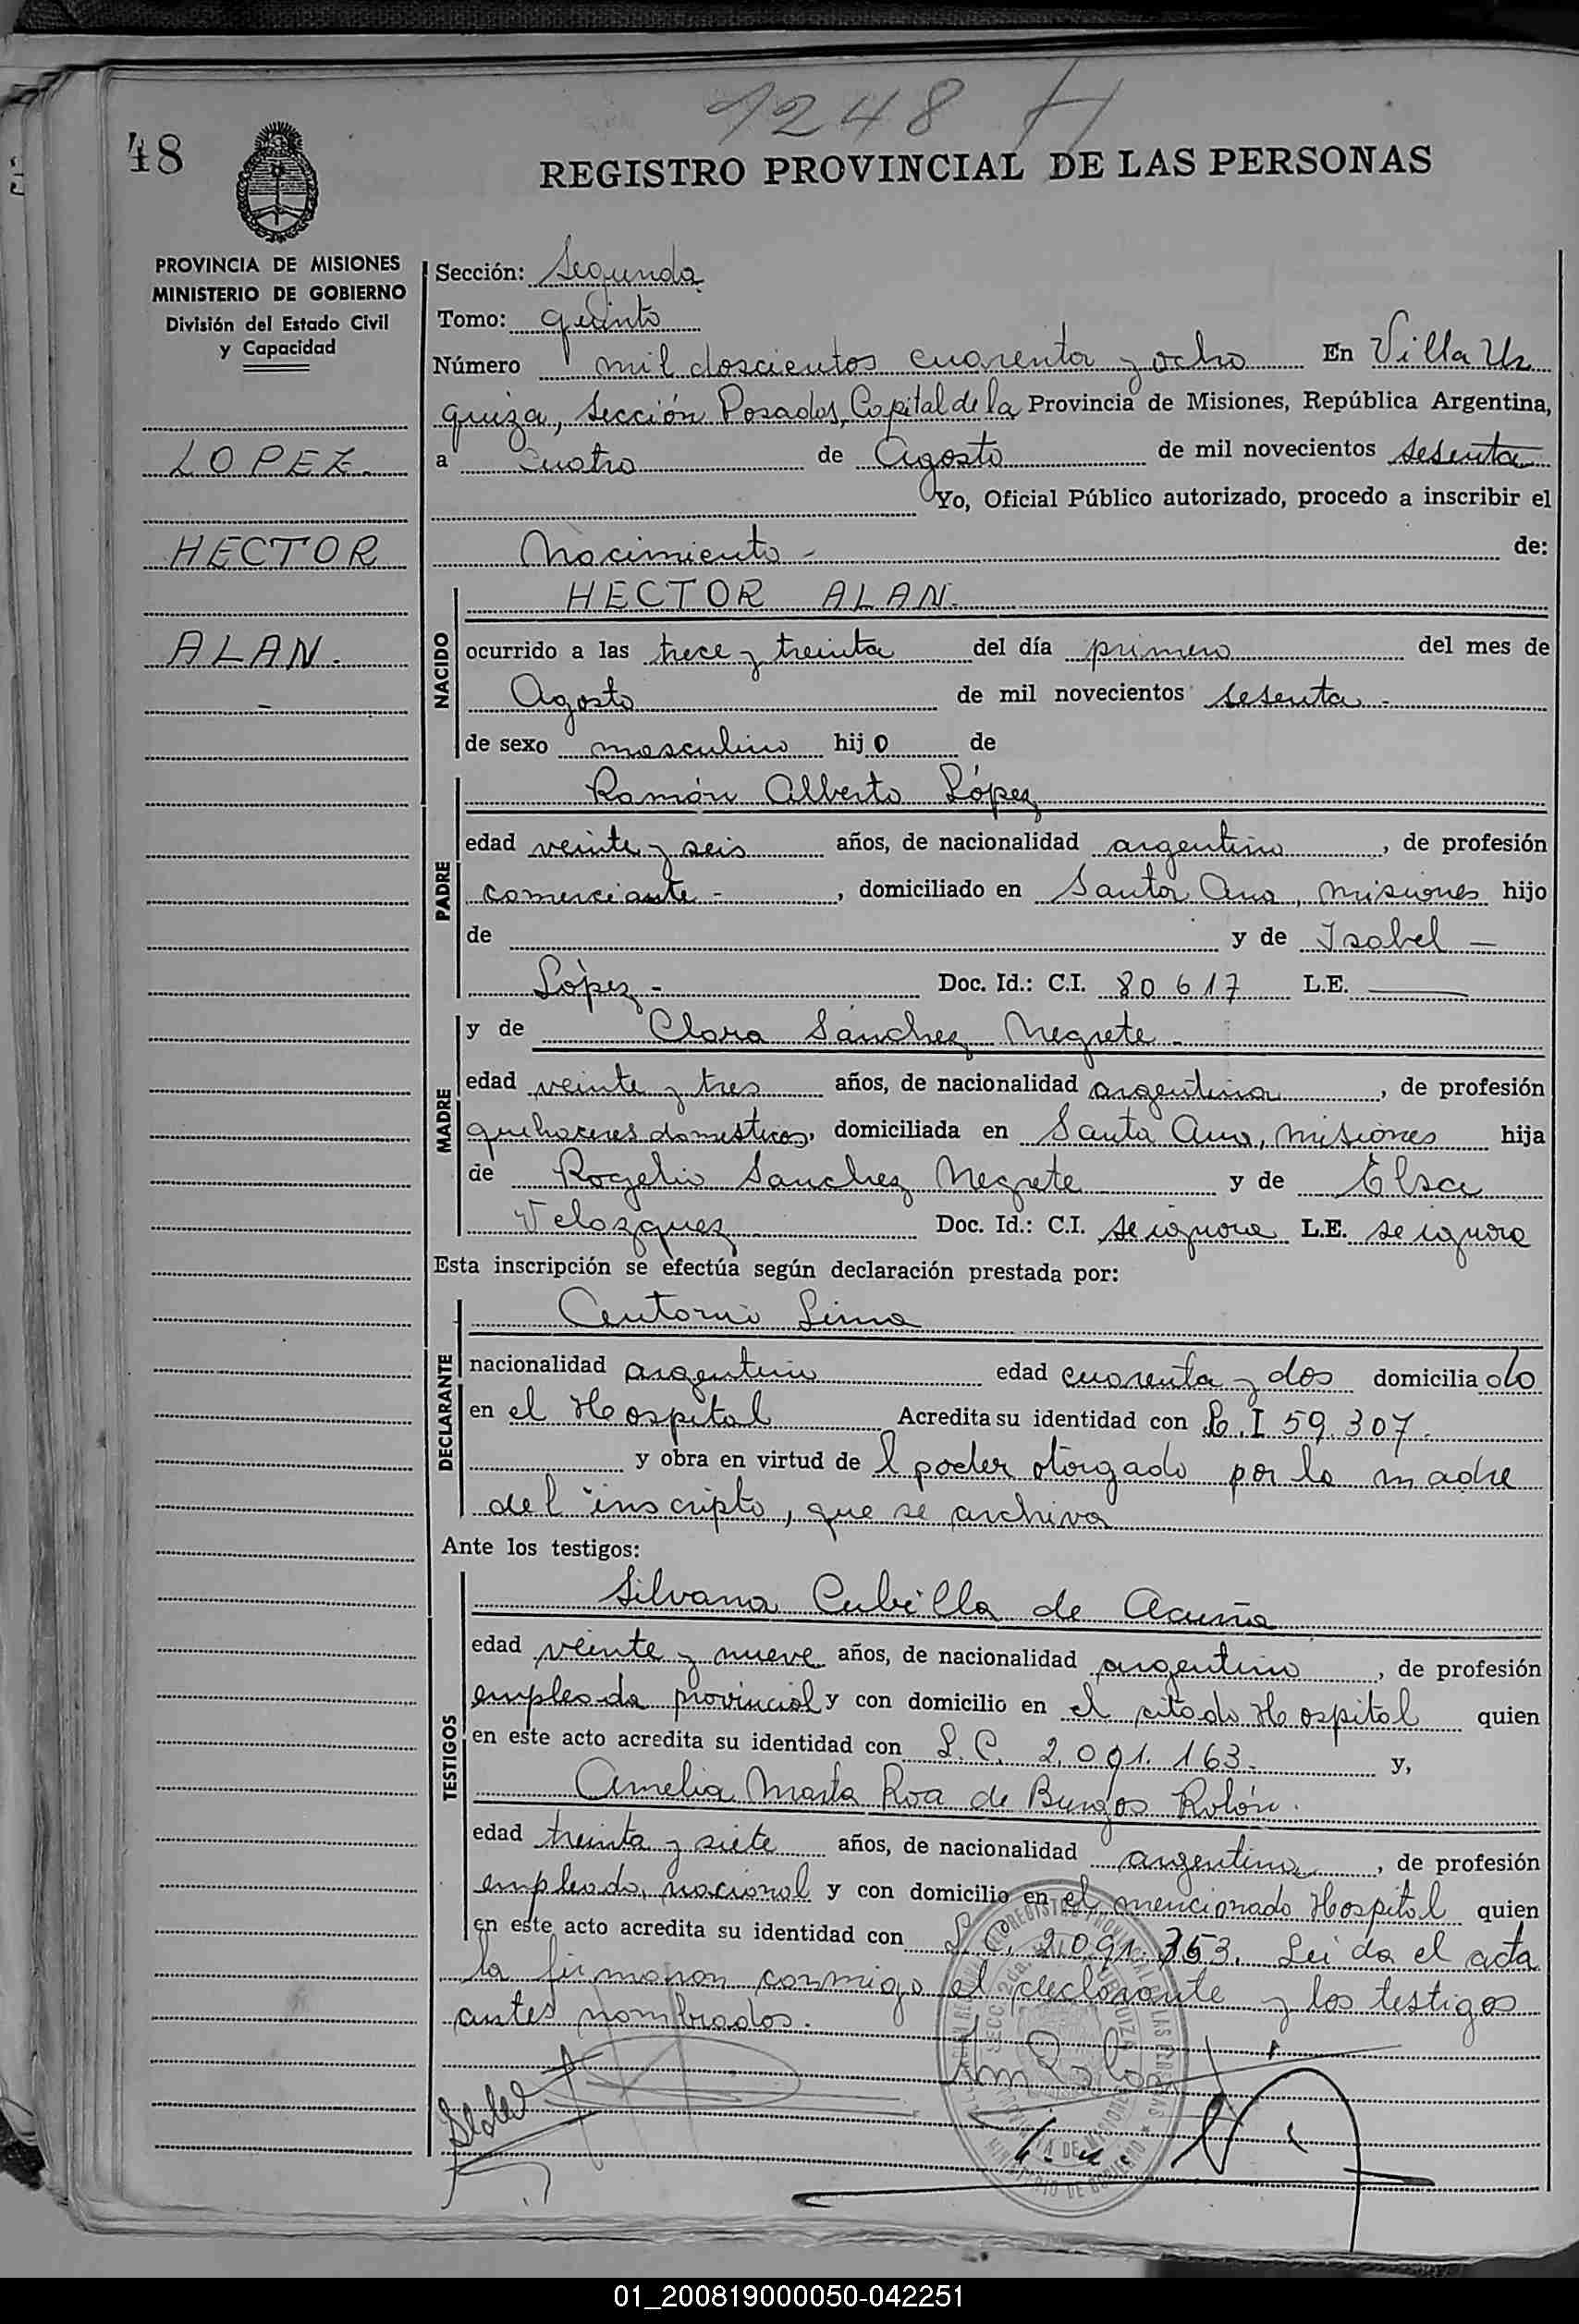 1248 H
48
REGISTRO PROVINCIAL DE LAS PERSONAS
PROVINCIA DE MISIONES
MINISTERIO DE GOBIERNO
División del Estado Civil
y Capacidad
LOPEZ.
HECTOR
ALAN.
Sección: Segunda
Tomo: quinto
Número mil doscientos cuarenta y ocho En Villa Ur
quiza, Sección Posadas, Capital de la Provincia de Misiones, República Argentina,
a Cuatro de Agosto de mil novecientos sesenta
Yo, Oficial Público autorizado, procedo a inscribir el
Nacimiento - de:
NACIDO
HECTOR ALAN.
ocurrido a las trece y treinta del día primero del mes de
Agosto de mil novecientos sesenta -
de sexo masculino hijo de
PADRE
Ramón Alberto López
edad veinte y seis años, de nacionalidad argentino, de profesión
comerciante -, domiciliado en Santa Ana, Misiones hijo
de y de Isabel —
López - Doc. Id.: C.I. 80617 L.E. —
MADRE
y de Clara Sánchez Negrete -
edad veinte y tres años, de nacionalidad argentina, de profesión
quehaceres domesticos, domiciliada en Santa Ana, Misiones hija
de Rogelio Sanchez Negrete y de Elsa
Velazquez Doc. Id.: C.I. se ignora L.E. se ignora
Esta inscripción se efectúa según declaración prestada por:
DECLARANTE
Antonio Lima
nacionalidad argentino edad cuarenta y dos domiciliado
en el Hospital Acredita su identidad con C.I 59.307.
y obra en virtud del poder otorgado por la madre
del inscripto, que se archiva
Ante los testigos:
TESTIGOS
Silvana Cubilla de Acuña
edad veinte y nueve años, de nacionalidad argentina, de profesión
empleada provincial y con domicilio en el citado Hospital quien
en este acto acredita su identidad con L.C. 2.091.163. y,
Amelia Marta Roa de Burgos Rolón.
edad treinta y siete años, de nacionalidad argentina, de profesión
empleada nacional y con domicilio en el mencionado Hospital quien
en este acto acredita su identidad con L.C. 2.091.353. Leida el acta
la firmaron conmigo el declarante y los testigos
antes nombrados.
01_200819000050-042251